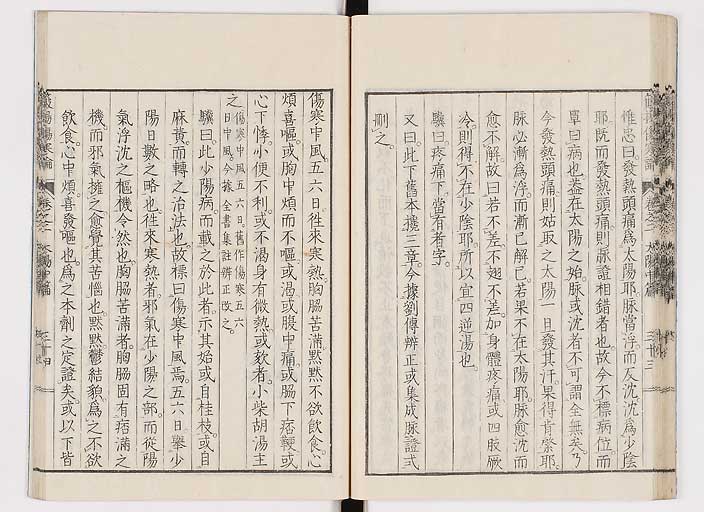 惟忠曰。發熱頭痛爲太陽耶。脈當浮而反沈。沈爲少陰
耶。既而發熱頭痛。則脈證相錯者也。故今不標病位。而
單曰病也。蓋在太陽之始。脈或沈者。不可謂全無矣。乃
今發熱頭痛。則姑取之太陽。一旦發其汗。果得肯綮耶。
脈必漸爲浮。而漸已解已。若果不在太陽耶。脈愈沈而
愈不解。故曰若不差。不翅不差。加身體疼痛。或四肢厥
冷。則得不在少陰耶。所以宜四逆湯也。
驥曰。疼痛下。當有者字。
又曰。此下舊本攙三章。今據劉傳辨正。或集成脈證式
刪之。
傷寒中風。五六日。往來寒熱。胸脇苦滿。默默不欲飲食。心
煩喜嘔。或胸中煩而不嘔。或渴。或腹中痛。或脇下痞鞕。或
心下悸。小便不利。或不渴。身有微熱。或欬者。小柴胡湯主
之。傷寒中風五六日。舊作傷寒五六
日中風。今據全書集註辨正改之。
驥曰。此少陽病。而載之於此者。示其始或自桂枝。或自
麻黄。而轉之治法也。故標曰傷寒中風焉。五六日擧少
陽日數之略也。往來寒熱者。邪氣在少陽之部。而從陽
氣浮沈之樞機。令然也。胸脇苦滿者。胸脇固有痞滿之
機。而邪氣擁之。愈覺其苦惱也。默默鬱結貌。爲之不欲
飲食。心中煩。喜發嘔也。爲之本劑之定證矣。或以下皆